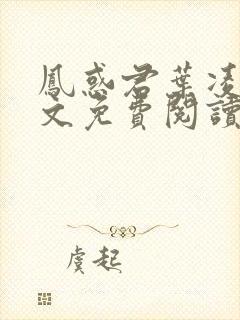 鳳惑君葉凌
文免費閱讀
虞起